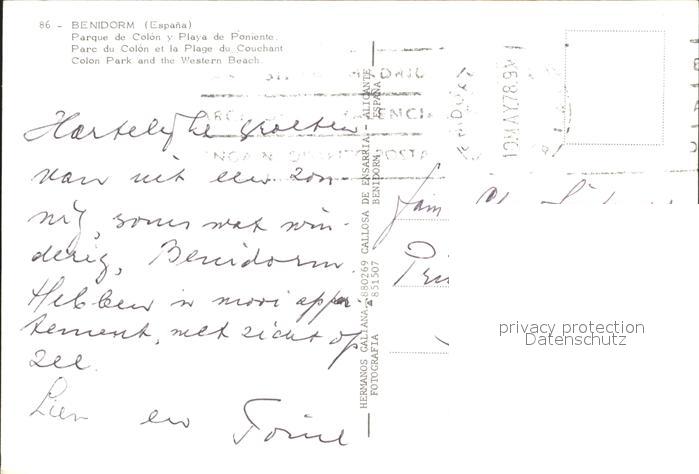 86 - BENIDORM (España)
Parque de Colón y Playa de Poniente.
Parc du Colón et la Plage du Couchant
Colon Park and the Western Beach.
Hartelijke groeten
van uit een zon-
nig, soms wat win-
derig, Benidorm.
Hebben 'n mooi appar-
tement, met zicht op
zee.
Lien en
HERMANOS GALIANA - 880269 CALLOSA DE ENSARRIA - ALICANTE
FOTOGRAFIA 851507 BENIDORM ESPAÑA
10MAY78
Fam
privacy protection
Datenschutz